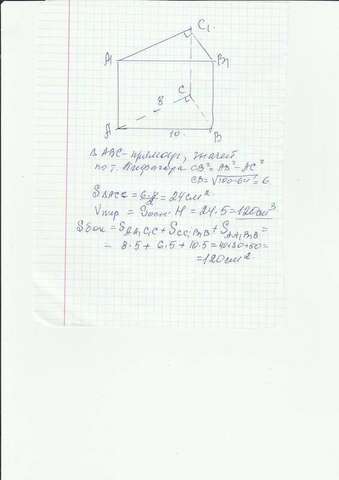 C₁
A₁ B₁
C
8
A B
10
Δ ABC - прямоуг., значит
по т. Пифагора CB² = AB² - AC²
CB = √100-64 = 6
= 24 см²
Vпр = Sосн · H = 24 · 5 = 120 см³
Sбок = SAA₁C₁C + SCC₁B₁B + SAA₁B₁B =
= 8·5 + 6·5 + 10·5 = 40+30+50 =
= 120 см²